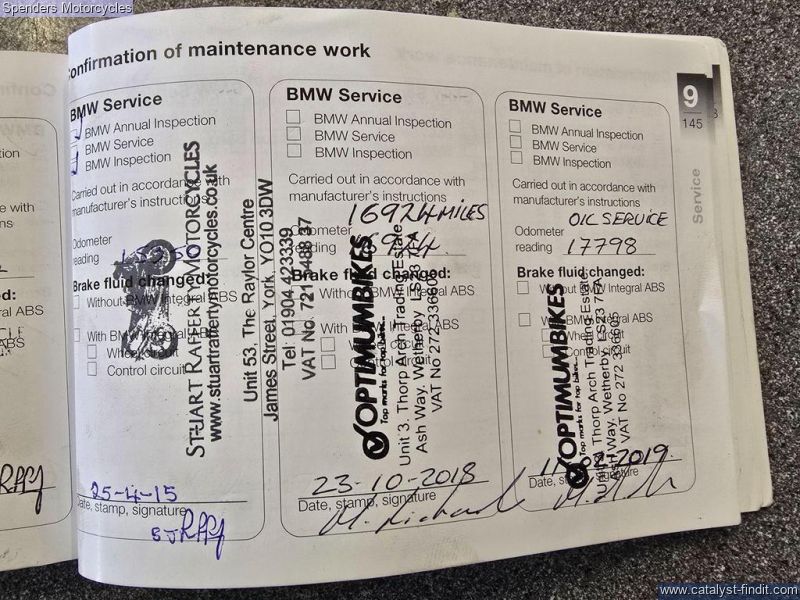 Spenders Motorcycles
Confirmation of maintenance work
BMW Service
BMW Annual Inspection
BMW Service
BMW Inspection
Carried out in accordance with
manufacturer's instructions
Odometer
reading
Brake fluid changed:
Without BMW Integral ABS
With BMW Integral ABS
Wheel circuit
Control circuit
STUART RAFFERTY MOTORCYCLES
www.stuartraffertymotorcycles.co.uk
Unit 53, The Raylor Centre
James Street, York, YO10 3DW
Tel: 01904 423339
VAT No
25-4-15
Date, stamp, signature
BMW Service
BMW Annual Inspection
BMW Service
BMW Inspection
Carried out in accordance with
manufacturer's instructions
16924 MILES
Odometer
reading
Brake fluid changed:
Without BMW Integral ABS
With BMW Integral ABS
OPTIMUMBIKES
Top marks for top bikes...
Unit 3, Thorp Arch Trading Estate
Ash Way, Wetherby LS23
VAT No 272 336605
23-10-2018
Date, stamp, signature
BMW Service
BMW Annual Inspection
BMW Service
BMW Inspection
Carried out in accordance with
manufacturer's instructions
OIL SERVICE
Odometer
reading 17798
Brake fluid changed:
Without BMW Integral ABS
With BMW Integral ABS
Wheel circuit
Control circuit
OPTIMUMBIKES
Top marks for top bikes...
Unit 3, Thorp Arch Trading Estate
Ash Way, Wetherby LS23
VAT No 272 336605
2019
Date, stamp, signature
9
145
Service
www.catalyst-findit.com